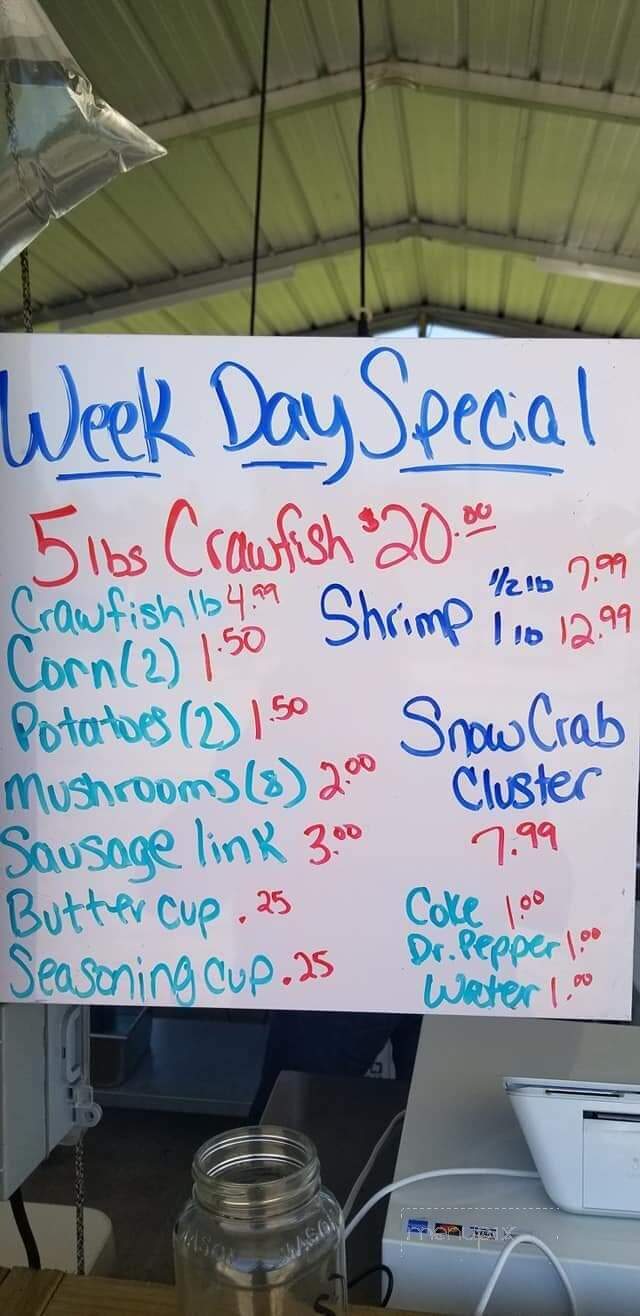 Week Day Special
5 lbs Crawfish $20.00
Crawfish lb 4.99
Corn (2) 1.50
Potatoes (2) 1.50
Mushrooms (8) 2.00
Sausage link 3.00
Butter cup .25
Seasoning cup .25
Shrimp 1/2 lb 7.99
1 lb 12.99
Snow Crab
Cluster
7.99
Coke 1.00
Dr. Pepper 1.00
Water 1.00
MASON MASON
menupix